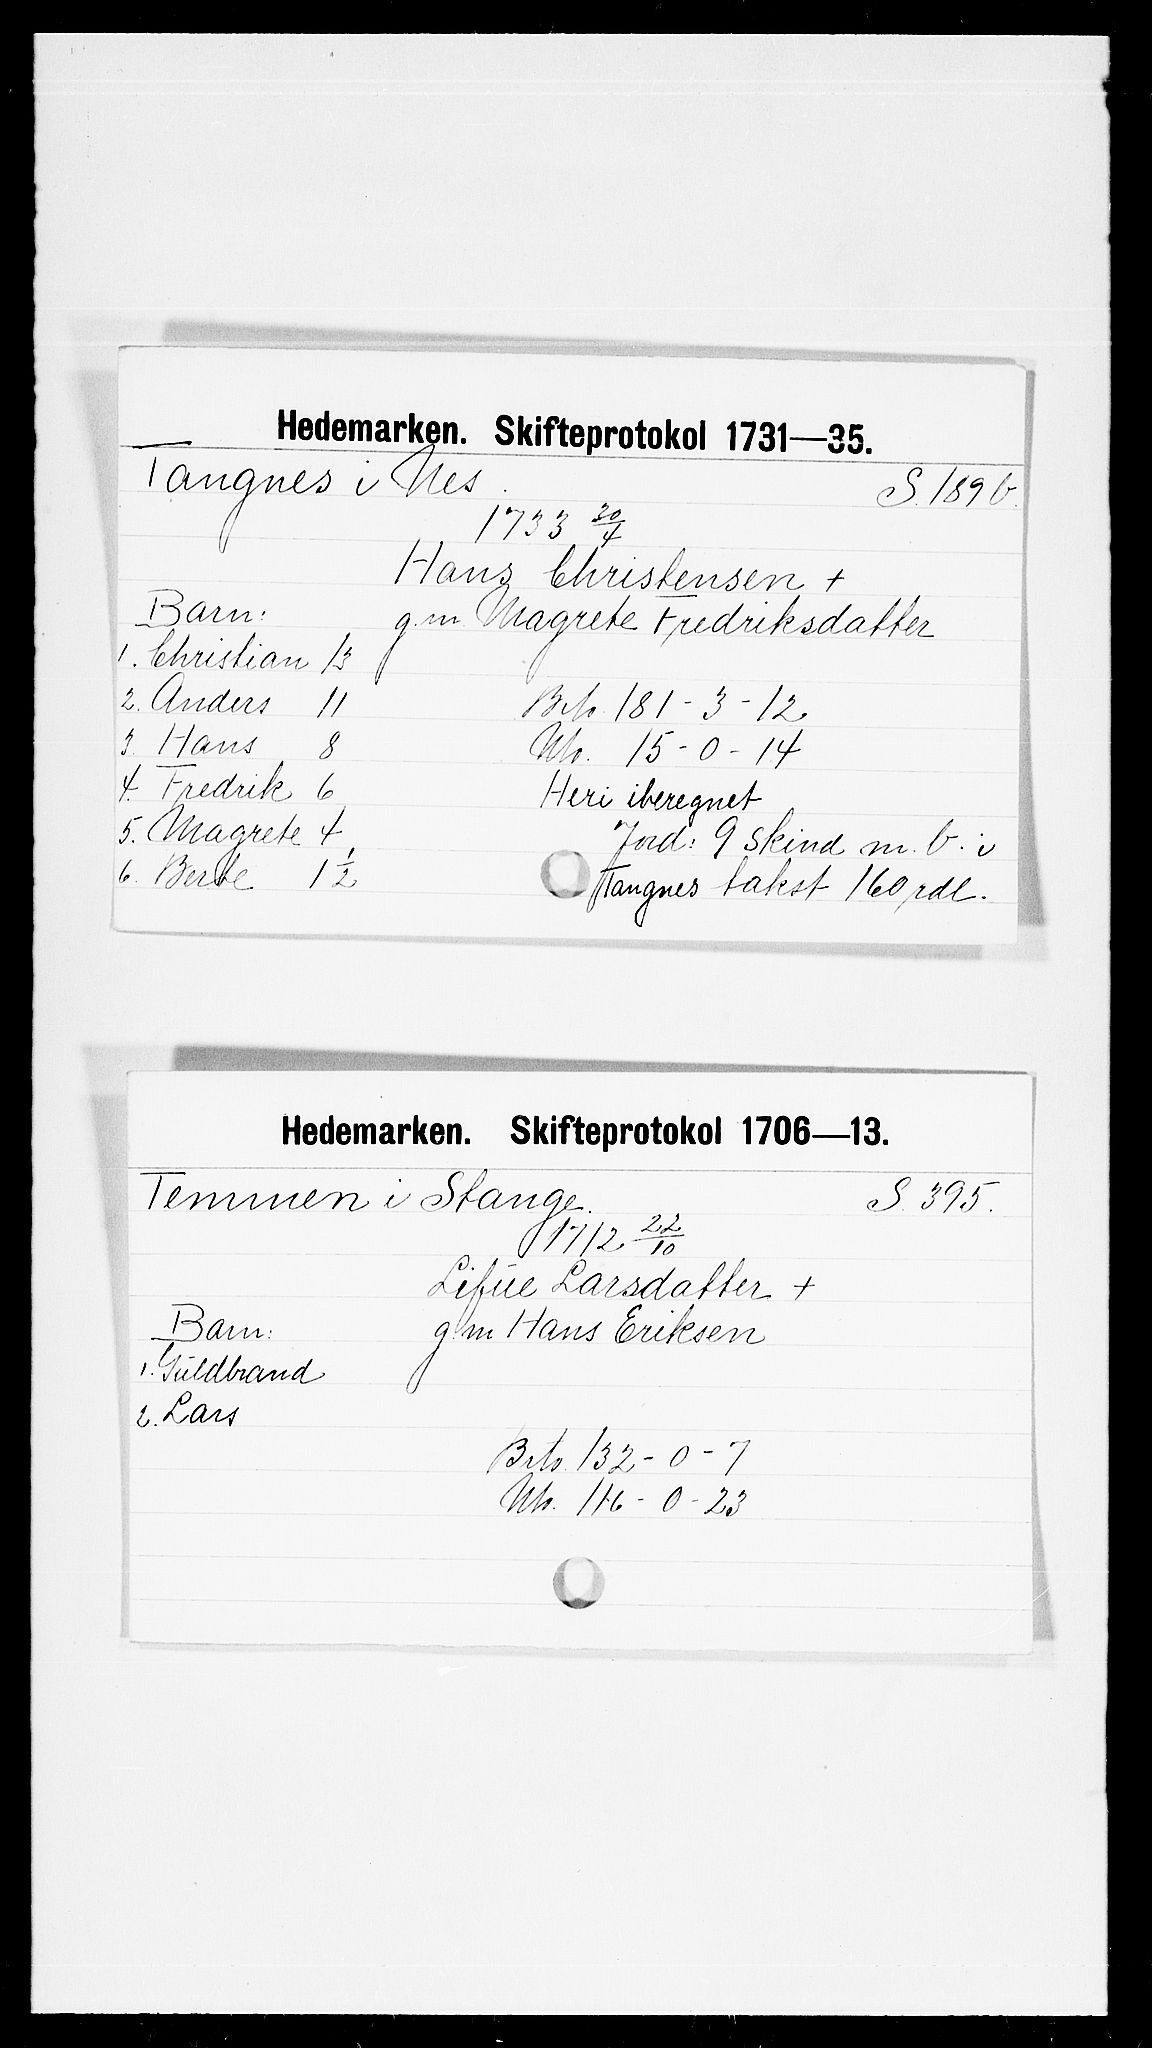 Hedemarken. Skifteprotokol 1731—35.
Tangnes i Nes. S. 189 b.
1733 30/4
Hans Christensen +
Barn: g.m. Magrete Fredriksdatter
1. Christian 13
2. Anders 11 Brto. 181 - 3 - 12
3. Hans 8 Nto. 15 - 0 - 14
4. Fredrik 6 Heri iberegnet
5. Magrete 4 Jord: 9 skind m. b. i
6. Berte 1 1/2 Tangnes takst 160 rdl.
Hedemarken. Skifteprotokol 1706—13.
Temmen i Stange. S. 395.
1712 22/10
Larsdatter +
Barn: g m Hans Eriksen
1. Guldbrand
2. Lars
Brto. 132 - 0 - 7
Nto. 116 - 0 - 23